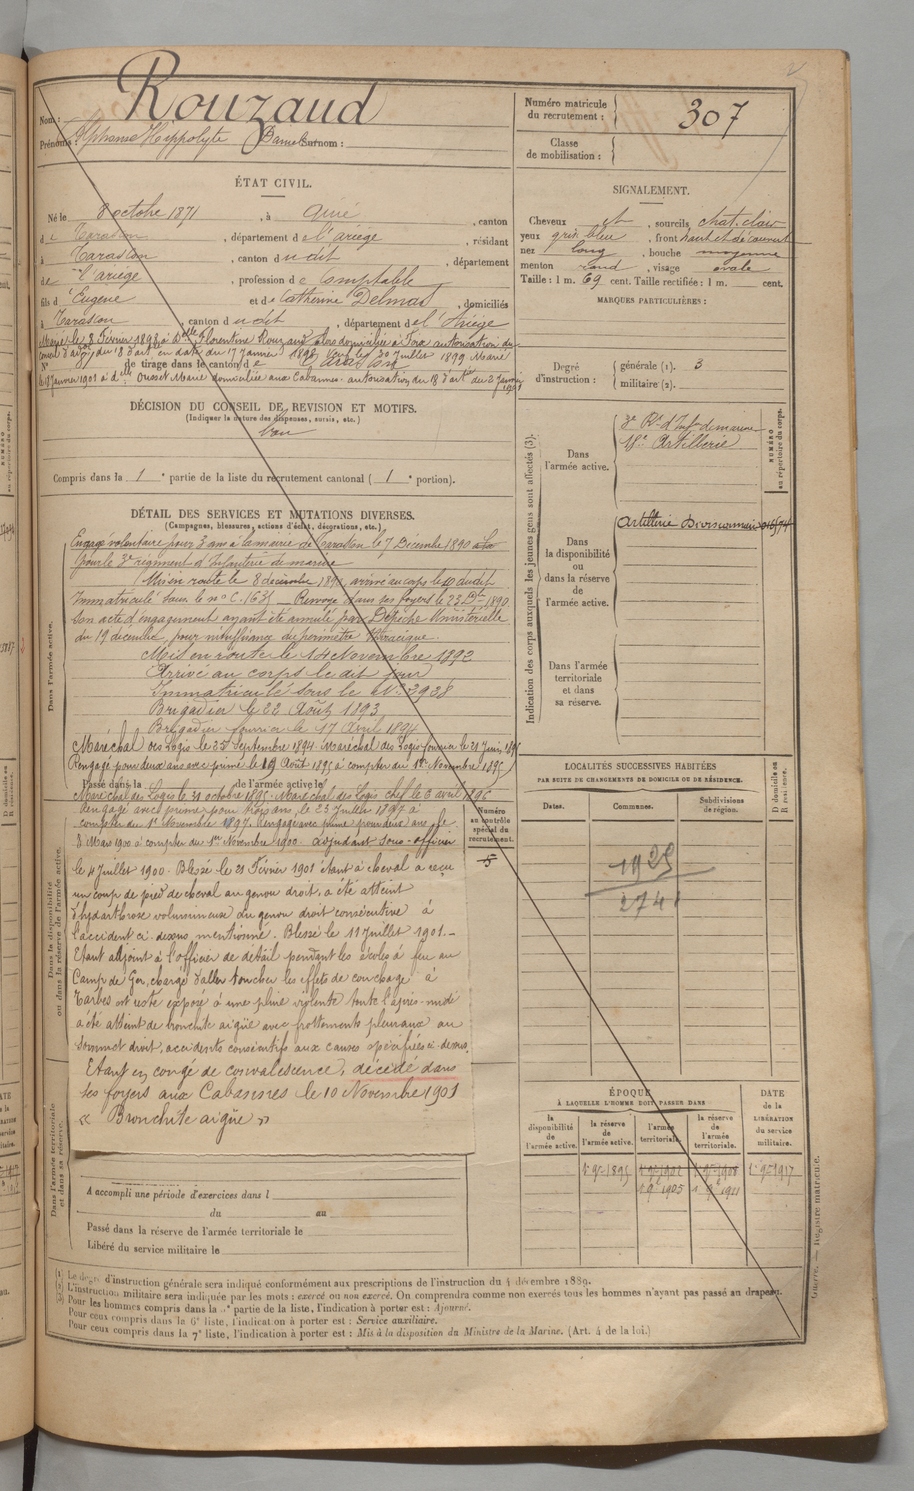 Rouzaud
Nom :
Prénoms : Alphonse Hippolyte Surnom :
Numéro matricule du recrutement : 307
Classe de mobilisation :
ÉTAT CIVIL.
Né le 8 octobre 1871, à Quié, canton
de Tarascon, département de l'ariège, résidant
à Tarascon, canton dudit, département
de l'ariège, profession de Comptable
fils d'Eugène et de Catherine Delmas, domiciliés
à Tarascon, canton dudit, département de l'Ariège
Marié le 8 Février 1898 à Dlle Florentine Rouzaud domiciliée à Foix autorisation du
conseil d'adon du 18e d'artie en date du 17 Janvier 1898. Veuf le 30 Juillet 1899 Marié
N° 87 de tirage dans le canton de Tarascon
le 19 Janvier 1901 à dlle Marie domiciliée aux Cabannes. autorisation du 18 d'artie du 2 Janvier 1901
DÉCISION DU CONSEIL DE REVISION ET MOTIFS.
(Indiquer la nature des dispenses, sursis, etc.)
bon
Compris dans la 1e partie de la liste du recrutement cantonal (1e portion).
DÉTAIL DES SERVICES ET MUTATIONS DIVERSES.
(Campagnes, blessures, actions d'éclat, décorations, etc.)
Dans l'armée active.
Engagé volontaire pour 3 ans à la mairie de Tarascon le 7 Décembre 1890
pour le 3e régiment d'Infanterie de marine
Mis en route le 8 décembre 1890, arrivé au corps le dudit
Immatriculé sous le n° C. 1631 _ Renvoyé dans ses foyers le 23 Dbre 1890
son acte d'engagement ayant été annulé par Dépêche Ministérielle
du 19 décembre, pour insuffisance du périmètre thoracique.
Mis en route le 14 Novembre 1892
Arrivé au corps le dit jour
Immatriculé sous le N° 2928
Brigadier le 22 Août 1893
Brigadier fourrier le 17 Avril 1894
Maréchal des Logis le 25 Septembre 1894. Maréchal des Logis fourrier le 21 Juin 1895
Rengagé pour deux ans avec prime le 19 Août 1895 à compter du 1er Novembre 1895
Passé dans la de l'armée active le
Maréchal des Logis le 31 octobre 1895. Maréchal des Logis chef le 6 avril 1896
Rengagé avec prime pour trois ans, le 23 Juillet 1897 à
compter du 1er Novembre 1897. Rengagé avec prime pour deux ans le
8 Mars 1900 à compter du 1er Novembre 1900. adjudant sous-officier
le 4 Juillet 1900. Blessé le 21 Février 1901 étant à cheval a reçu
un coup de pied de cheval au genou droit, a été atteint
d'hydarthrose volumineuse du genou droit consécutive à
l'accident ci-dessus mentionné. Blessé le 11 Juillet 1901. _
Etant adjoint à l'officier de détail pendant les écoles à feu au
Camp de Ger, chargé d'aller toucher les effets de couchage à
Tarbes est resté exposé à une pluie violente toute l'après-midi
a été atteint de bronchite aigüe avec frottements pleuraux au
sommet droit, accidents consécutifs aux causes spécifiées ci-dessus.
Etant en congé de convalescence, décédé dans
ses foyers aux Cabannes le 10 Novembre 1901
« Bronchite aigüe »
Dans la disponibilité
ou dans la réserve de l'armée active.
Numéro
au contrôle
spécial du
recrutement.
5
Dans l'armée territoriale
et dans sa réserve.
A accompli une période d'exercices dans l
du au
Passé dans la réserve de l'armée territoriale le
Libéré du service militaire le
SIGNALEMENT.
Cheveux et, sourcils chat. clair
yeux gris bleu, front haut et découvert
nez long, bouche moyenne
menton rond, visage ovale
Taille : 1 m. 69 cent. Taille rectifiée : 1 m. cent.
MARQUES PARTICULIÈRES :
Degré d'instruction : générale (1). 3
militaire (2).
Indication des corps auxquels les jeunes gens sont affectés (3).
NUMÉRO
au répertoire du corps.
Dans
l'armée active.
3e Rt d'Infie de marine
18e Artillerie
Dans
la disponibilité
ou
dans la réserve
de
l'armée active.
Artillerie Divisionnaire
Dans l'armée
territoriale
et dans
sa réserve.
LOCALITÉS SUCCESSIVES HABITÉES
PAR SUITE DE CHANGEMENTS DE DOMICILE OU DE RÉSIDENCE.
Dates.
Communes.
Subdivisions
de région.
D domicile ou
R résidence.
1925
2741
ÉPOQUE
À LAQUELLE L'HOMME DOIT PASSER DANS
la
disponibilité
de
l'armée active.
la réserve
de
l'armée active.
l'armée
territoriale.
la réserve
de
l'armée
territoriale.
DATE
de la
LIBÉRATION
du service
militaire.
1er 9bre 1895
1er 9bre 1902
1er 9bre 1908
1er 9bre 1917
1er 9bre 1905
1er 9bre 1911
(1) Le degré d'instruction générale sera indiqué conformément aux prescriptions de l'instruction du 4 décembre 1889.
(2) L'instruction militaire sera indiquée par les mots : exercé ou non exercé. On comprendra comme non exercés tous les hommes n'ayant pas passé au drapeau.
(3) Pour les hommes compris dans la 5e partie de la liste, l'indication à porter est : Ajourné.
Pour ceux compris dans la 6e liste, l'indication à porter est : Service auxiliaire.
Pour ceux compris dans la 7e liste, l'indication à porter est : Mis à la disposition du Ministre de la Marine. (Art. 4 de la loi.)
Guerre. — Registre matricule.